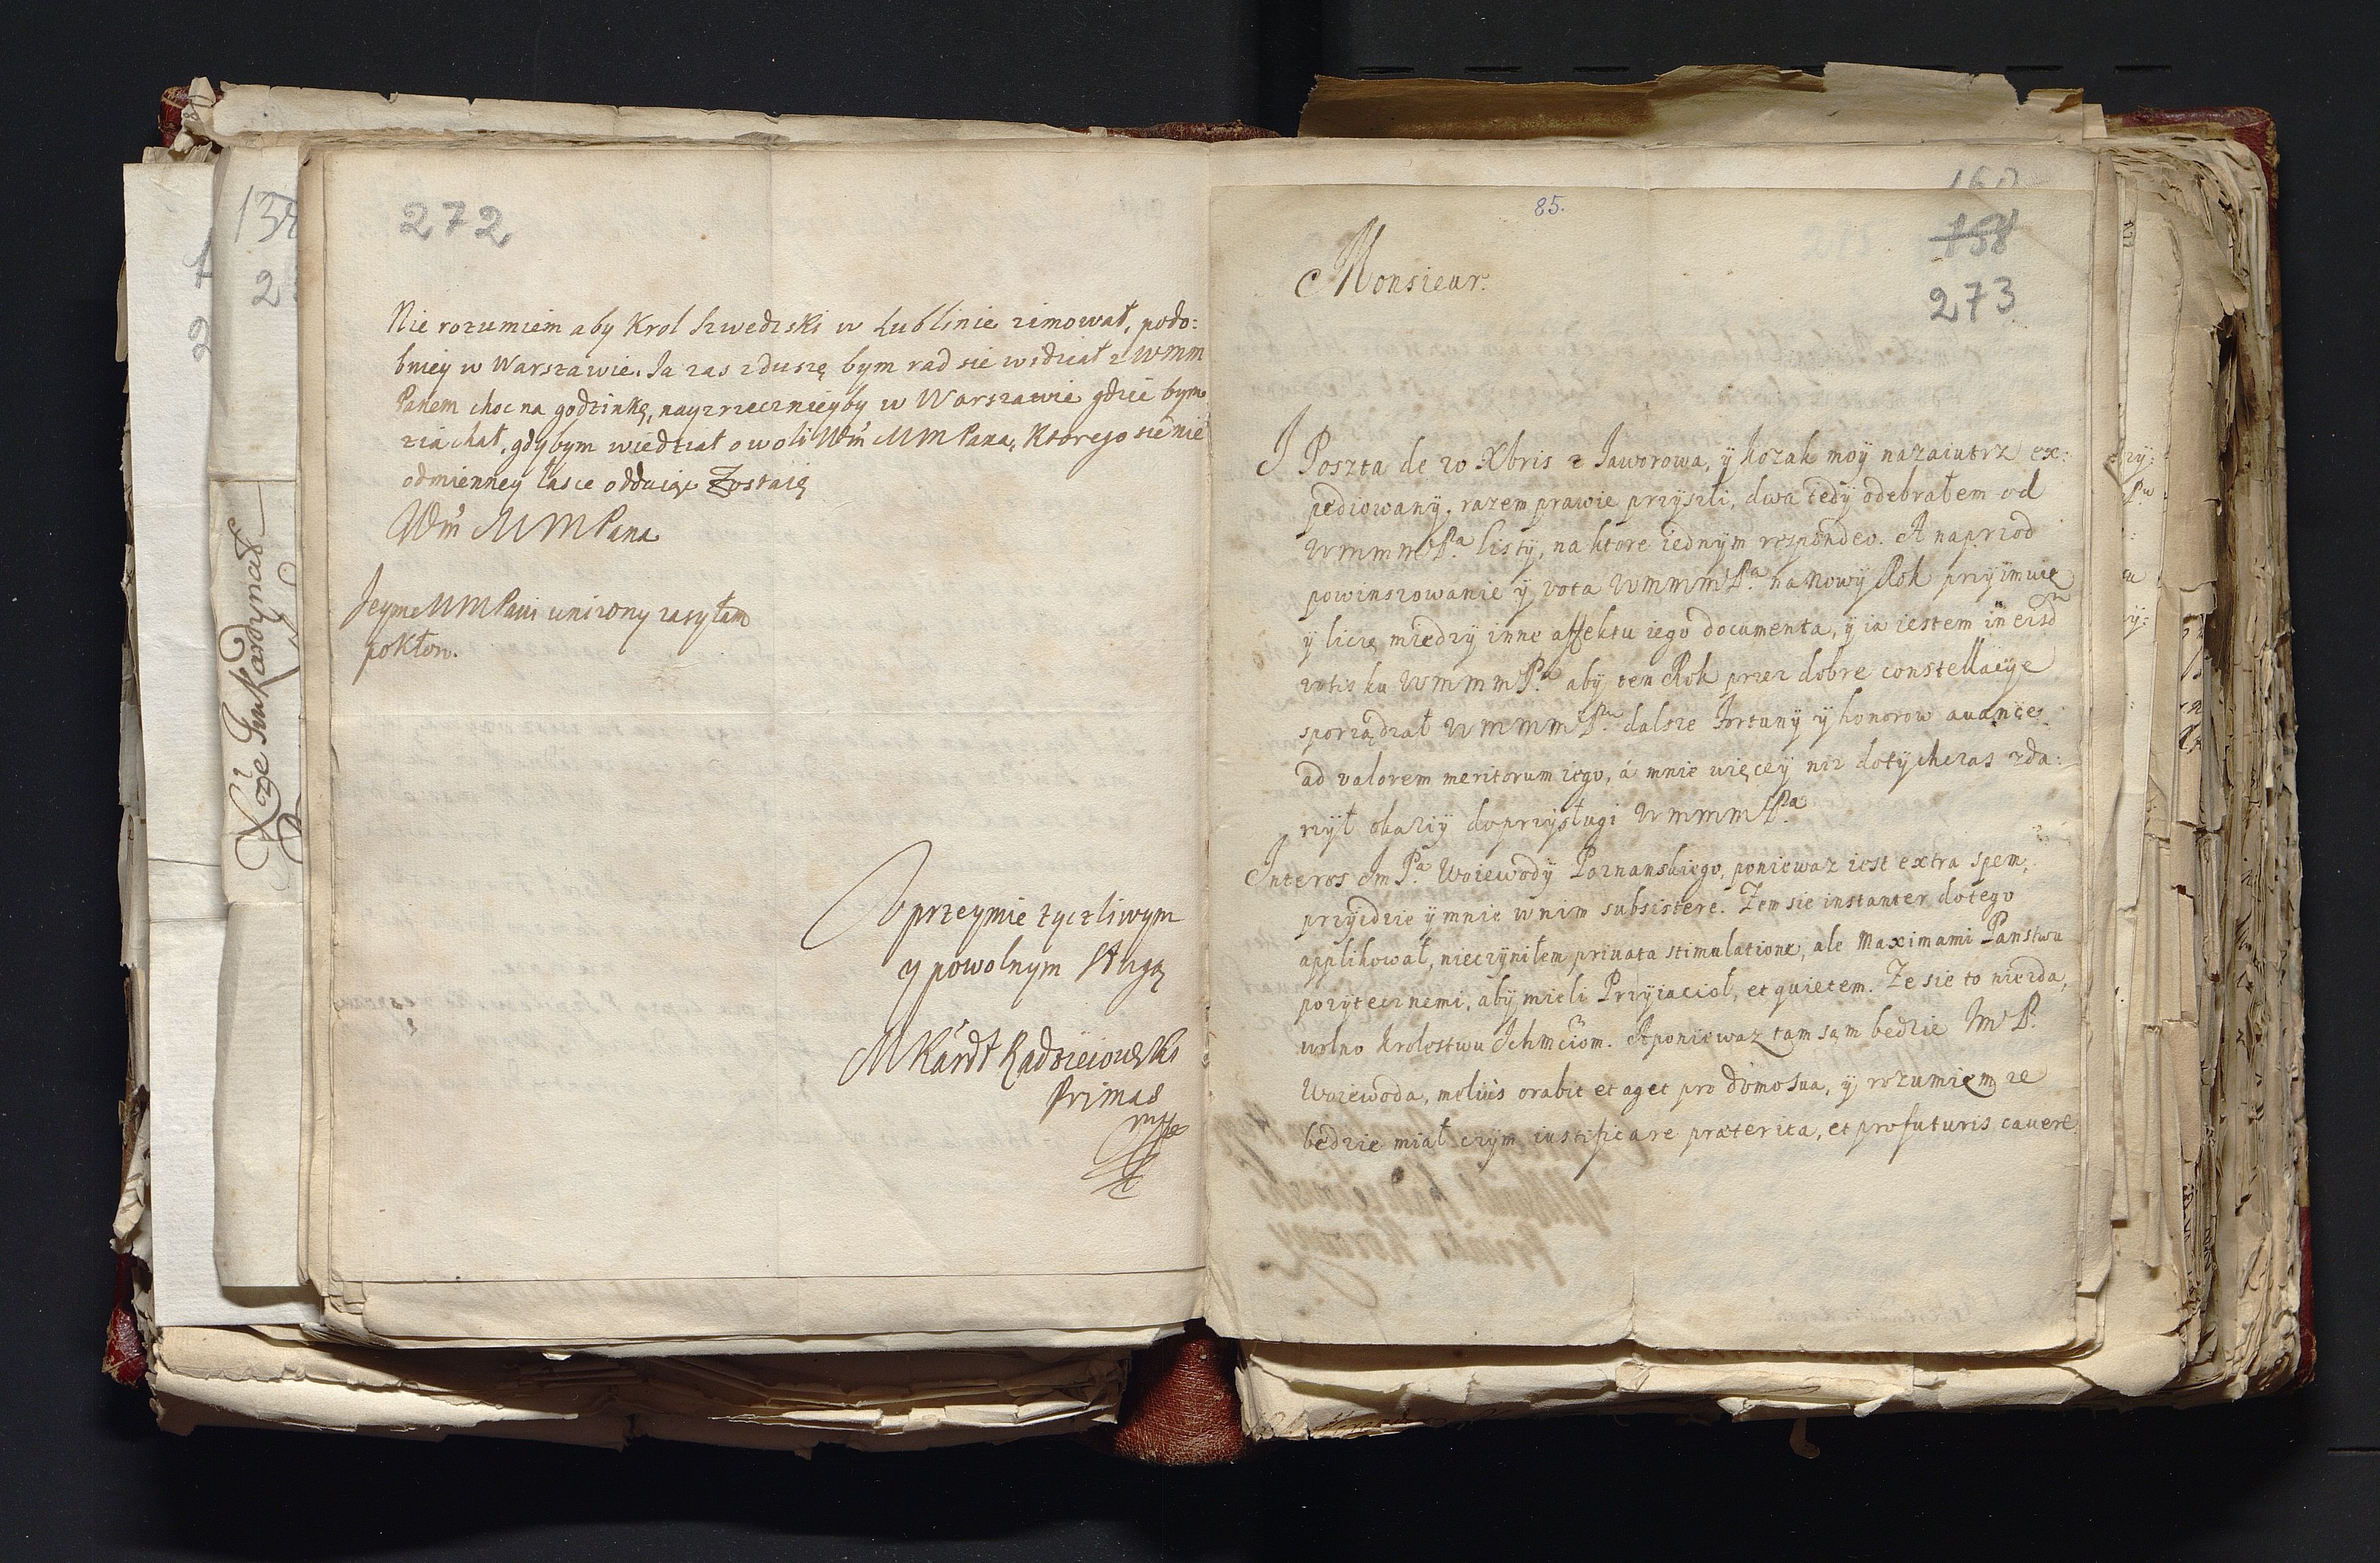 272
Nie rozumiem aby Krol Szwedzki w Lublinie zimował, podo:
bniey w Warszawie. Ja zas z duszę bym rad sie widział z WMM
Panem choc na godzinkę, nayzrzeczniey by w Warszawie gdzie bym
ziachał, gdybym wiedział o woli Wm MM Pana, Ktorego sie nie
odmienney łasce oddaiąc Zostaię
Wm MM Pana
Jeyme MM Pani unizony zasyłam
pokłon.
Uprzeymie zyczliwym
y powolnym Sługą
M Kardł Radzieiowski
Primas
mpp
Xże Imć Kardynał
85.
160
158
273
Monsieur.
I Poszta de 20 Xbris z Jaworowa, ÿ kozak moÿ nazaiutrz ex:
pediowanÿ, razem prawie przÿszli, dwa tedÿ odebrałem od
Wmmm Pa listÿ, na ktore iednÿm respondeo. A naprzod
powinszowanie ÿ vota Wmmm Pa na Nowÿ Rok przÿimuię
ÿ liczę miedzÿ inne affektu iego documenta, ÿ ia iestem in eisd
votis ku Wmmm Pa abÿ ten Rok przez dobre constellacÿe
sporządzał Wmmm Pu dalsze fortunÿ ÿ honorow auance
ad valorem meritorum iego, á mnie więceÿ niz dotÿchczas zda:
rzÿł okaziÿ do przÿsługi Wmmm Pa
Interes Jm Pa Woiewodÿ Poznanskiego, poniewaz iest extra spem,
przÿidzie ÿ mnie w nim subsistere. Zem sie instanter do tego
applikował, nieczÿniłem priuata stimulatione, ale Maximami Panstwu
pozÿtecznemi, abÿ mieli Przÿiaciol, et quietem. Ze sie to niezda,
wolno Krolostwu Ichmciom. A poniewaz tam sąm bedzie Jm P.
Woiewoda, melius orabit et aget pro domo sua, ÿ rozumiem ze
bedzie miał czÿm iustificare præterita, et pro futuris cauere